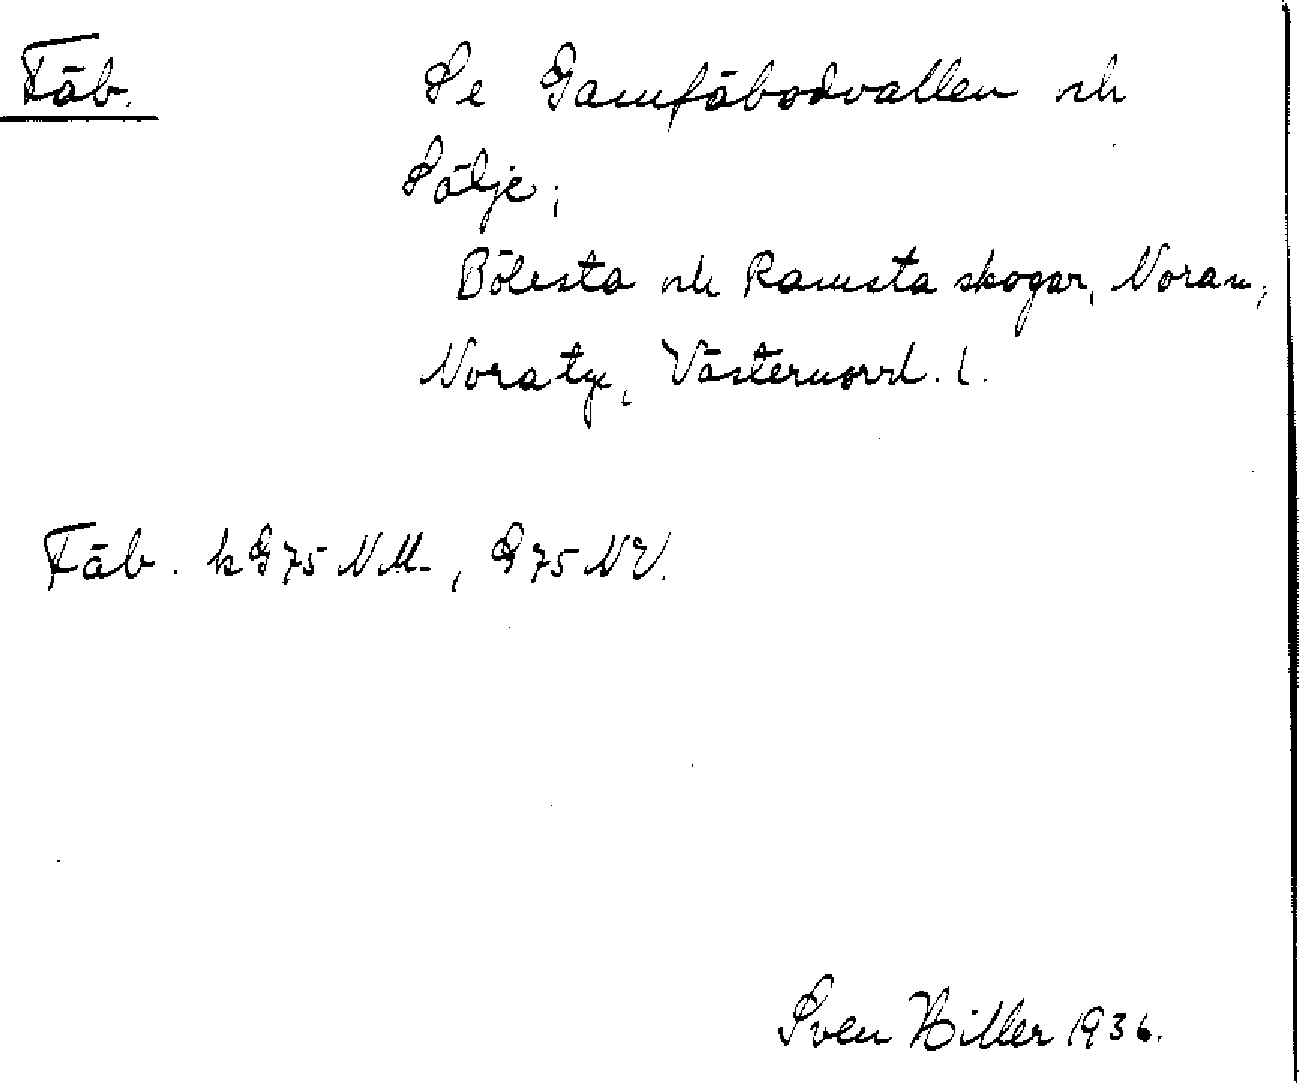 Fäb. Se Gamfäbodvallen och
Sälje;
Bölesta och Ramsta skogar, Nora sn,
Nora tg, Västernorrl. l.
Fäb. k G 75 NM, G 75 NV.
Sven Hiller 1936.